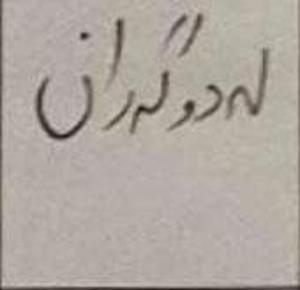 لەدوگەران